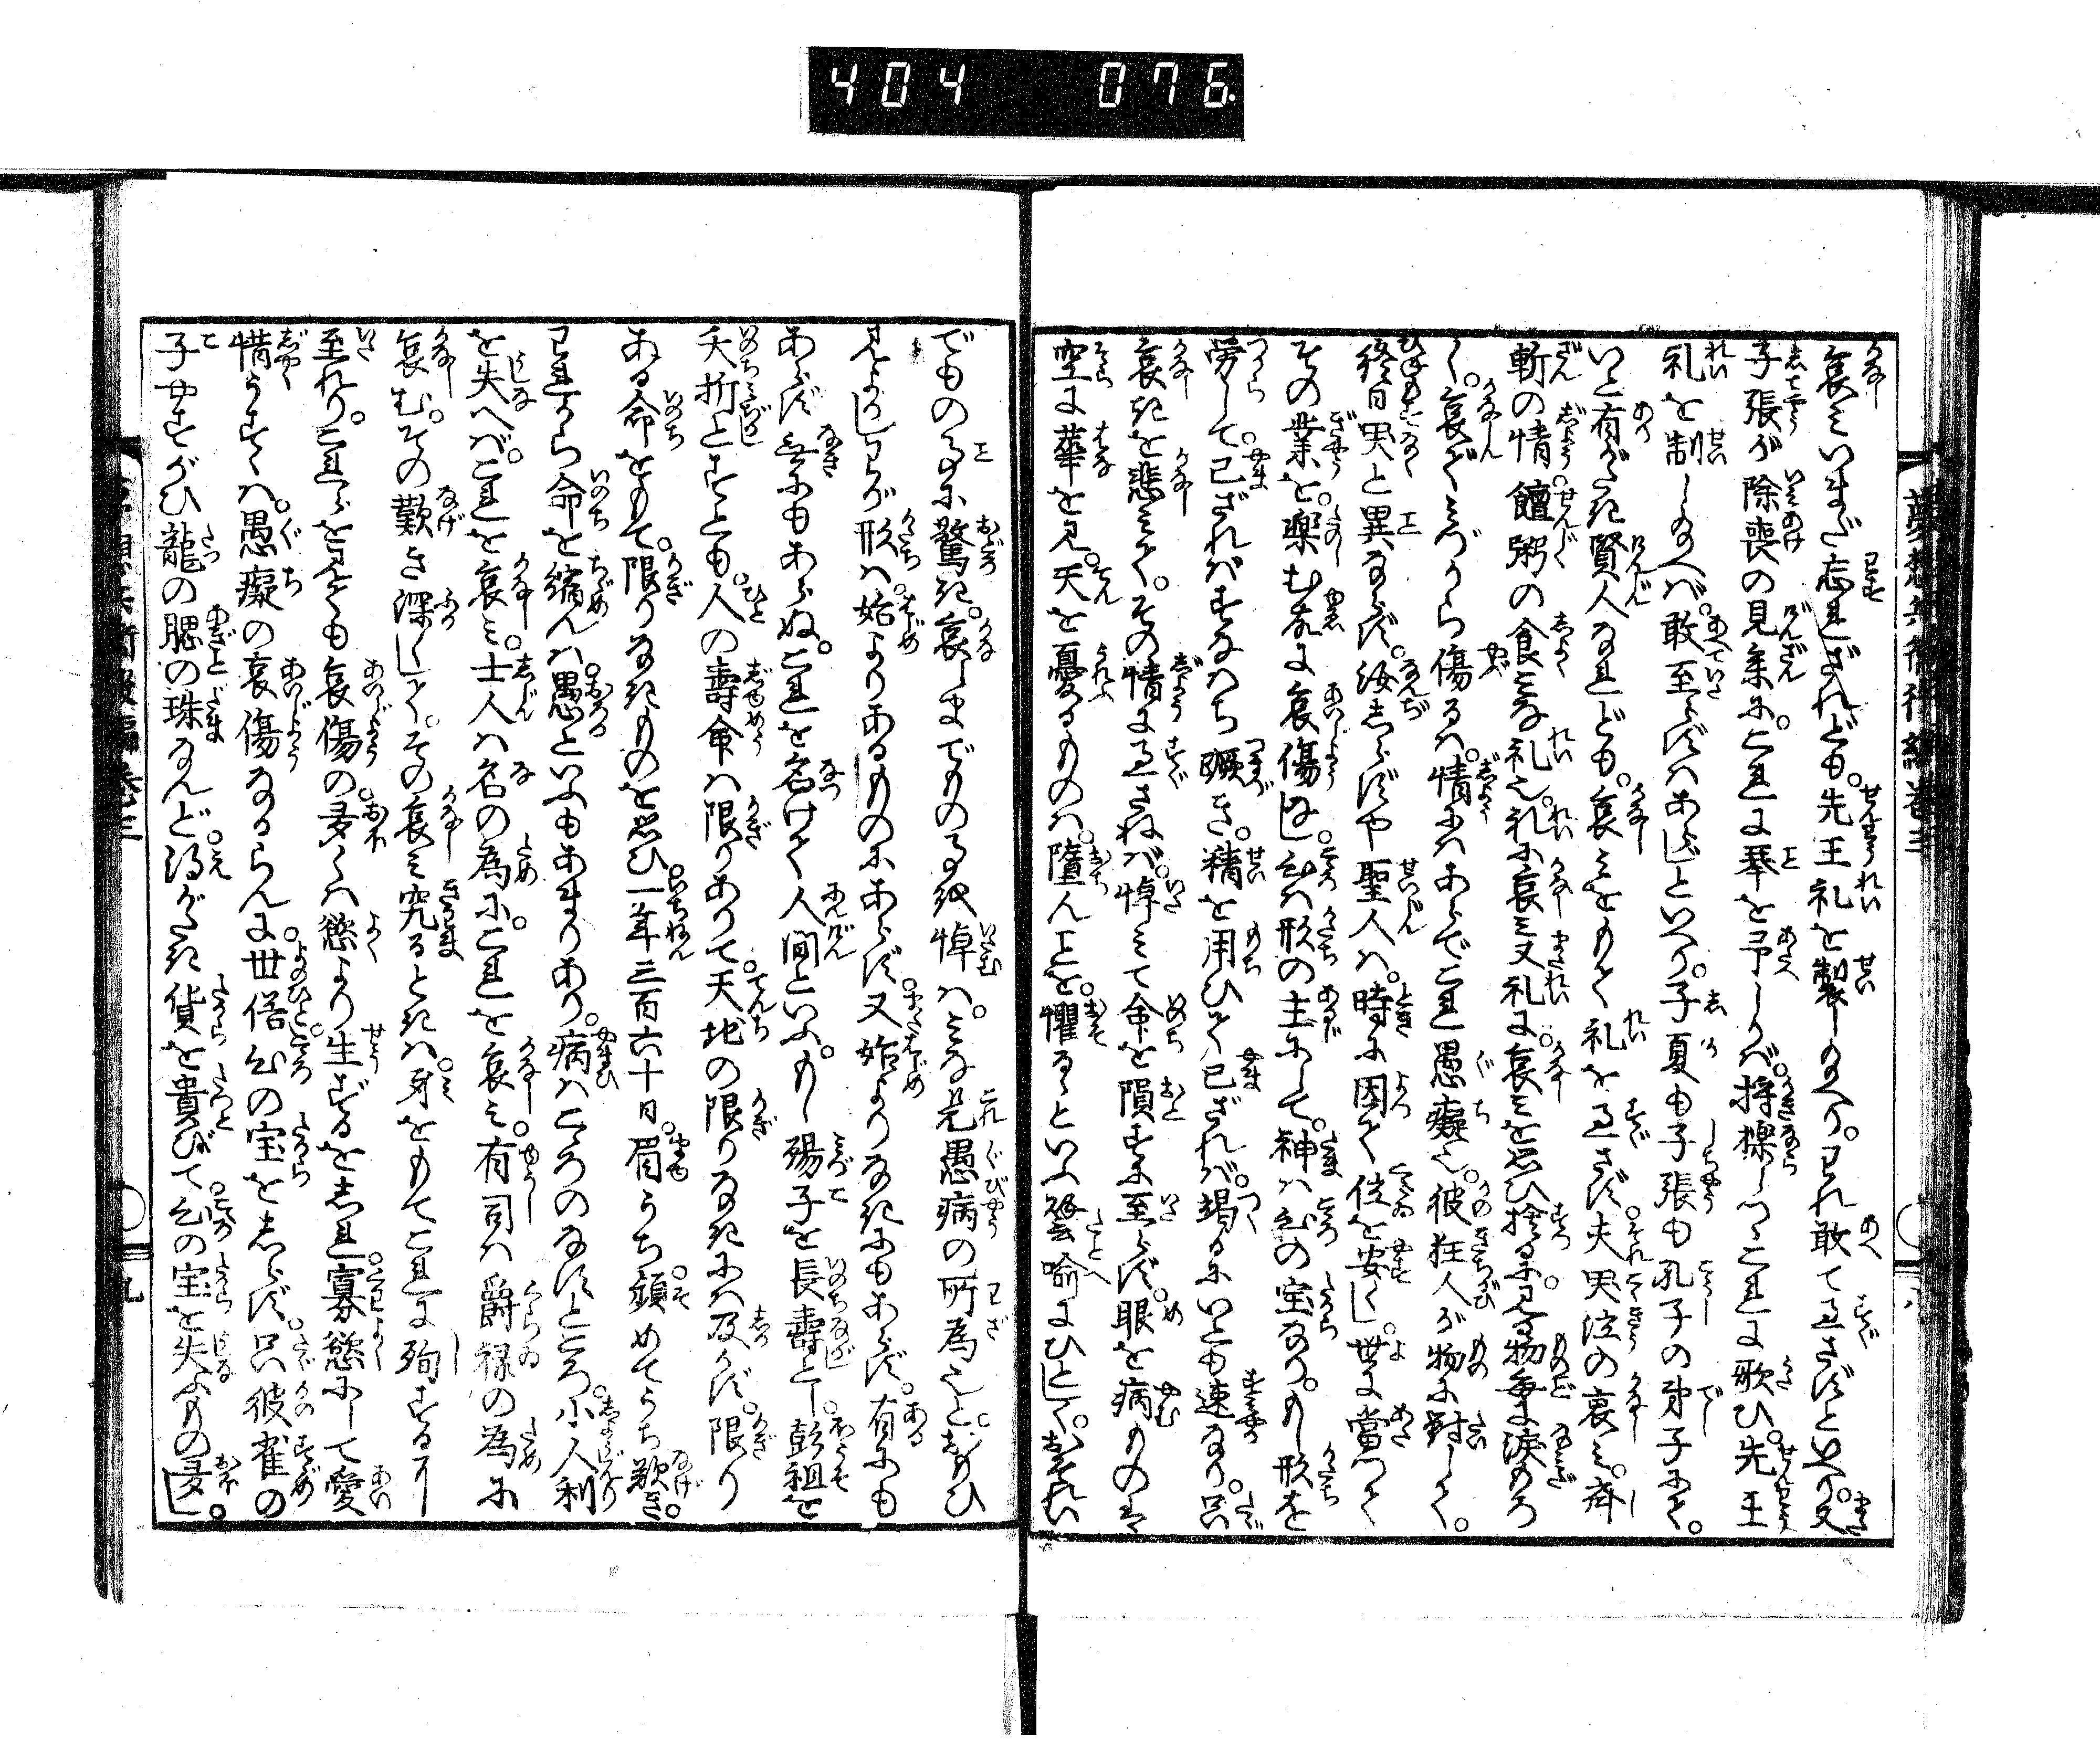 404 076
夢想兵衛後編巻三
哀みいまだ忘れざれども。先王礼を製しのへり。われ敢て過さずといへり。又
子張が除喪の見参に。これに琴を予しかば。捋操しつゝこれに歌ひ。先王
礼を制しのへば。敢至らずはあらじといへり。子夏も子張も孔子の弟子にて。
いと有がたき賢人なれども。哀みをもて礼を過さず。夫哭泣の哀み。斉
斬の情。饘粥の食みな礼也。礼に哀み又礼に。哀みを思ひ捨るに。見る物毎に涙もろ
く。哀でみづから傷るは。情にはあらでこれ愚癡也。彼狂人が物に対して。
終日哭と異ならず。汝志らずや聖人は。時に因て位を安くし。世に当つて
その業を。楽むゆゑに哀傷なし。心は形の主にして。神は心の宝なり。もし形を
労して。已ざればすなはち蹶き。精を用ひて已ざれば。竭るにいとも速なり。只
哀きを悲みて。その情に過さねば。悼みて命を隕すに至らず。眼を病ものは
空に華を見。天を憂るものは。墮んことを。懼るゝといふ譬喩にひとしく。
でもの事に驚き。哀しまでもの事を悼は。みな是愚病の所為也と。おもひ
見よかしわが形は。始よりあるものにあらず。又始よりなきにもあらず。有にも
あらず無にもあらぬ。これを名けて人間といふ。もし殤子を長寿とし。彭祖を
夭折とすとも。人の寿命は限りありて。天地の限りなきには及ばず。限り
ある命をもて。限りなきものを思ひ。一年三百六十日。眉うち顰めてうち歎き。
われから命を縮んは。愚といふもあまりあり。病はこゝろのなすところ。小人利
を失へば。これを哀み。士人は名の為に。これを哀み。有司は爵禄の為に
哀む。その歎き深くして。その哀み究るときは。身をもてこれに殉するに
至れり。これらを見ても哀傷の。多くは慾より生ずるを志れ。寡慾にして愛
惜うすくは。愚癡の哀傷なからんに。世俗心の宝を志らず。只彼雀の
子やすがひ龍の腮の珠なんど。得がたき貨を貴びて。心の宝を失ふもの多し。
九